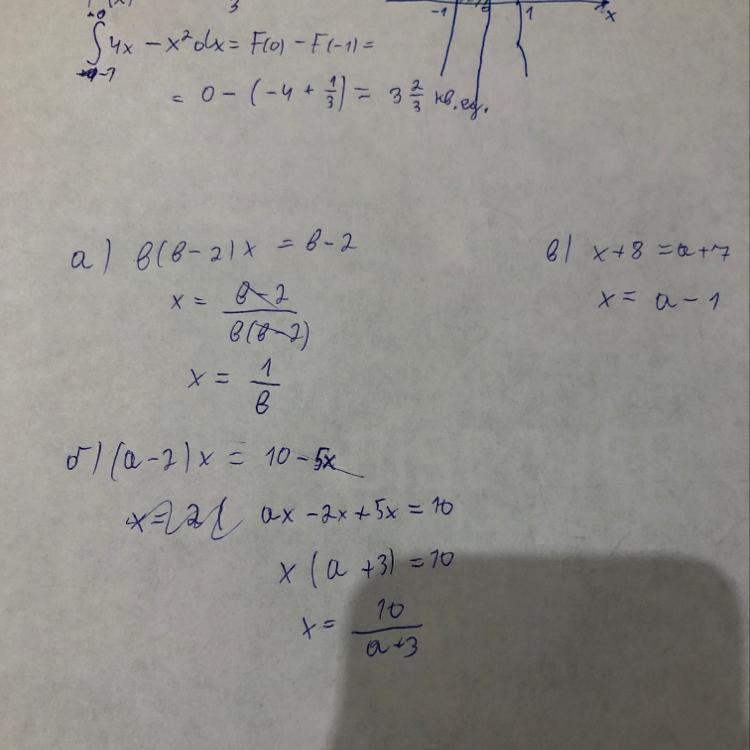 3
-1 0 1 x
∫₋₁⁰ 4x - x² dx = F(0) - F(-1) =
= 0 - (-4 + 1/3) = 3 2/3 кв.ед.
а) в(в-2)x = в-2
x = в-2 / в(в-2)
x = 1/в
в) x+8 = a+7
x = a-1
б) (a-2)x = 10-5x
ax - 2x + 5x = 10
x(a+3) = 10
x = 10 / a+3